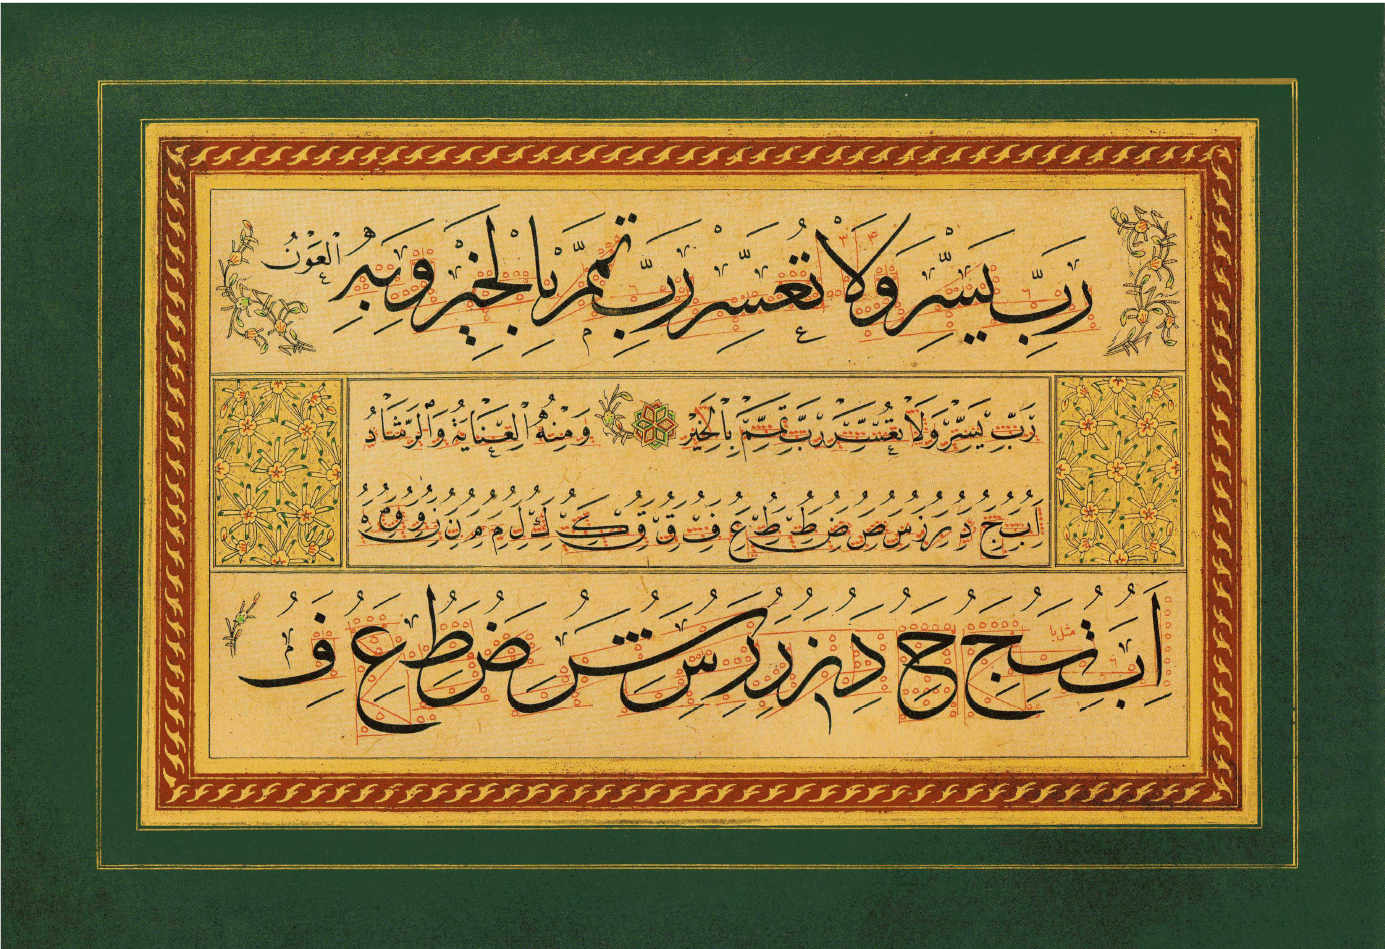 رَبِّ يَسِّرْ وَلَا تُعَسِّرْ رَبِّ تَمِّمْ بِالْخَيْرِ وَبِهِ الْعَوْنُ
رَبِّ يَسِّرْ وَلَا تُعَسِّرْ رَبِّ تَمِّمْ بِالْخَيْرِ وَمِنْهُ الْعِنَايَةُ وَالرَّشَادُ
ا ب ج د ر ز س ص ض ط ظ ع ف ق ق ك ل ل م م ن ن و و م ه
ا ب ت ج ح د ز ر ر س ش ض ط ع ف